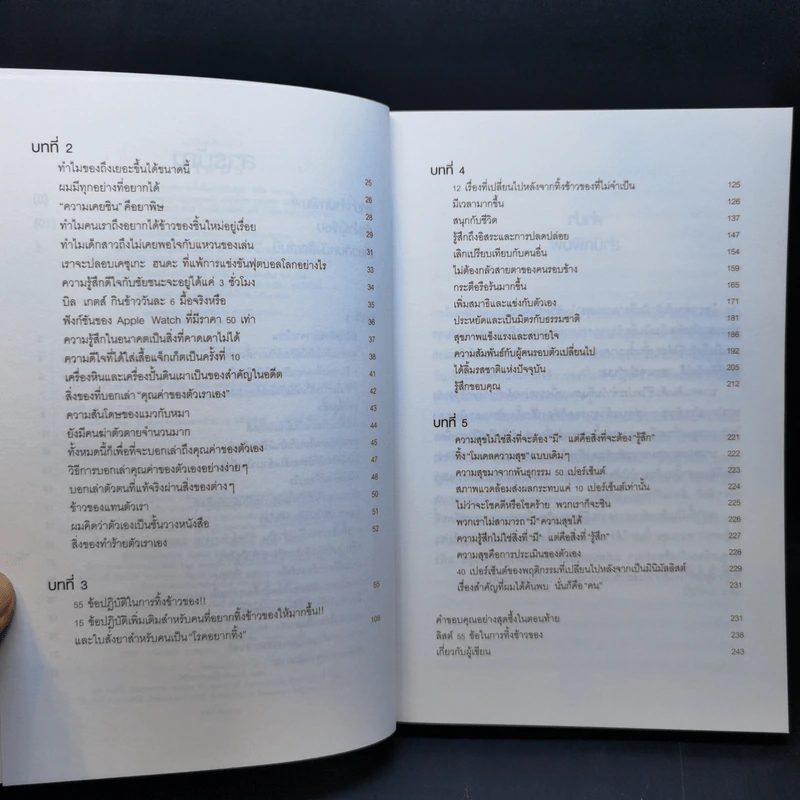 บทที่ 2
ทำไมของถึงเยอะขึ้นได้ขนาดนี้
ผมมีทุกอย่างที่อยากได้ 25
"ความเคยชิน" คือยาพิษ 26
ทำไมคนเราถึงอยากได้ข้าวของชิ้นใหม่อยู่เรื่อย 28
ทำไมเด็กสาวถึงไม่เคยพอใจกับแหวนของเล่น 29
เราจะปลอบเคซุเกะ ฮนดะ ที่แพ้การแข่งขันฟุตบอลโลกอย่างไร 31
ความรู้สึกดีใจกับชัยชนะจะอยู่ได้แค่ 3 ชั่วโมง 33
บิล เกตส์ กินข้าววันละ 6 มื้อจริงหรือ 34
ฟังก์ชันของ Apple Watch ที่มีราคา 50 เท่า 35
ความรู้สึกในอนาคตเป็นสิ่งที่คาดเดาไม่ได้ 36
ความดีใจที่ได้ใส่เสื้อแจ็กเก็ตเป็นครั้งที่ 10 37
เครื่องหินและเครื่องปั้นดินเผาเป็นของสำคัญในอดีต 38
สิ่งของที่บอกเล่า "คุณค่าของตัวเราเอง" 41
ความสันโดษของแมวกับหมา 42
ยังมีคนฆ่าตัวตายจำนวนมาก 43
ทั้งหมดนี้ก็เพื่อที่จะบอกเล่าถึงคุณค่าของตัวเอง 44
วิธีการบอกเล่าคุณค่าของตัวเองอย่างง่ายๆ 45
บอกเล่าตัวตนที่แท้จริงผ่านสิ่งของต่างๆ 47
ข้าวของแทนตัวเรา 50
ผมคิดว่าตัวเองเป็นชั้นวางหนังสือ 51
สิ่งของทำร้ายตัวเราเอง 52
บทที่ 3
55 ข้อปฏิบัติในการทิ้งข้าวของ!! 55
15 ข้อปฏิบัติเพิ่มเติมสำหรับคนที่อยากทิ้งข้าวของให้มากขึ้น!! 108
และใบสั่งยาสำหรับคนเป็น "โรคอยากทิ้ง"
บทที่ 4
12 เรื่องที่เปลี่ยนไปหลังจากทิ้งข้าวของที่ไม่จำเป็น 125
มีเวลามากขึ้น 126
สนุกกับชีวิต 137
รู้สึกถึงอิสระและการปลดปล่อย 147
เลิกเปรียบเทียบกับคนอื่น 154
ไม่ต้องกลัวสายตาของคนรอบข้าง 159
กระตือรือร้นมากขึ้น 165
เพิ่มสมาธิและแข่งกับตัวเอง 171
ประหยัดและเป็นมิตรกับธรรมชาติ 181
สุขภาพแข็งแรงและสบายใจ 186
ความสัมพันธ์กับผู้คนรอบตัวเปลี่ยนไป 192
ได้ลิ้มรสชาติแห่งปัจจุบัน 205
รู้สึกขอบคุณ 212
บทที่ 5
ความสุขไม่ใช่สิ่งที่จะต้อง "มี" แต่คือสิ่งที่จะต้อง "รู้สึก" 221
ทิ้ง "โมเดลความสุข" แบบเดิมๆ 222
ความสุขมาจากพันธุกรรม 50 เปอร์เซ็นต์ 223
สภาพแวดล้อมส่งผลกระทบแค่ 10 เปอร์เซ็นต์เท่านั้น 224
ไม่ว่าจะโชคดีหรือโชคร้าย พวกเราก็จะชิน 225
พวกเราไม่สามารถ "มี" ความสุขได้ 226
ความรู้สึกไม่ใช่สิ่งที่ "มี" แต่คือสิ่งที่ "รู้สึก" 227
ความสุขคือการประเมินของตัวเอง 228
40 เปอร์เซ็นต์ของพฤติกรรมที่เปลี่ยนไปหลังจากเป็นมินิมัลลิสต์ 229
เรื่องสำคัญที่ผมได้ค้นพบ นั่นก็คือ "คน" 231
คำขอบคุณอย่างสุดซึ้งในตอนท้าย 231
ลิสต์ 55 ข้อในการทิ้งข้าวของ 238
เกี่ยวกับผู้เขียน 243